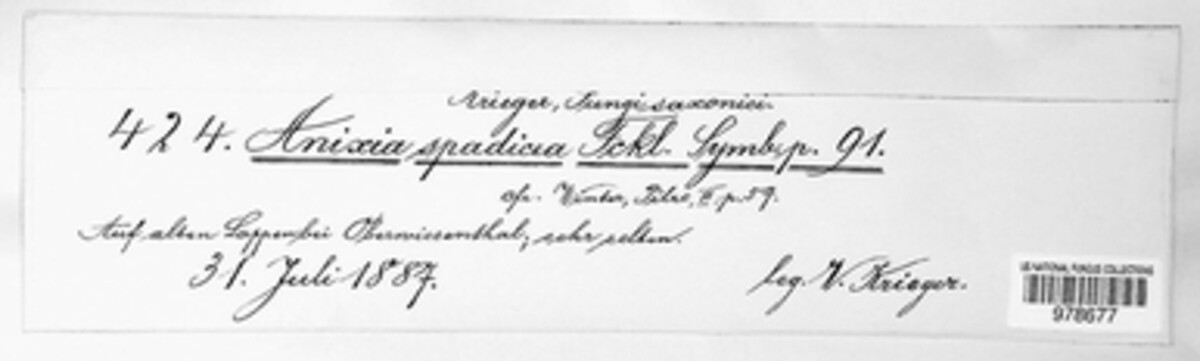 Krieger, Fungi saxonici.
424. Anixia spadicea Fckl. Symb. p. 91.
cfr. Winter, Pilze, II p. 59.
Auf alten Lappen bei Oberwiesenthal; sehr selten.
31. Juli 1887.
leg. W. Krieger.
US NATIONAL FUNGUS COLLECTIONS
978677